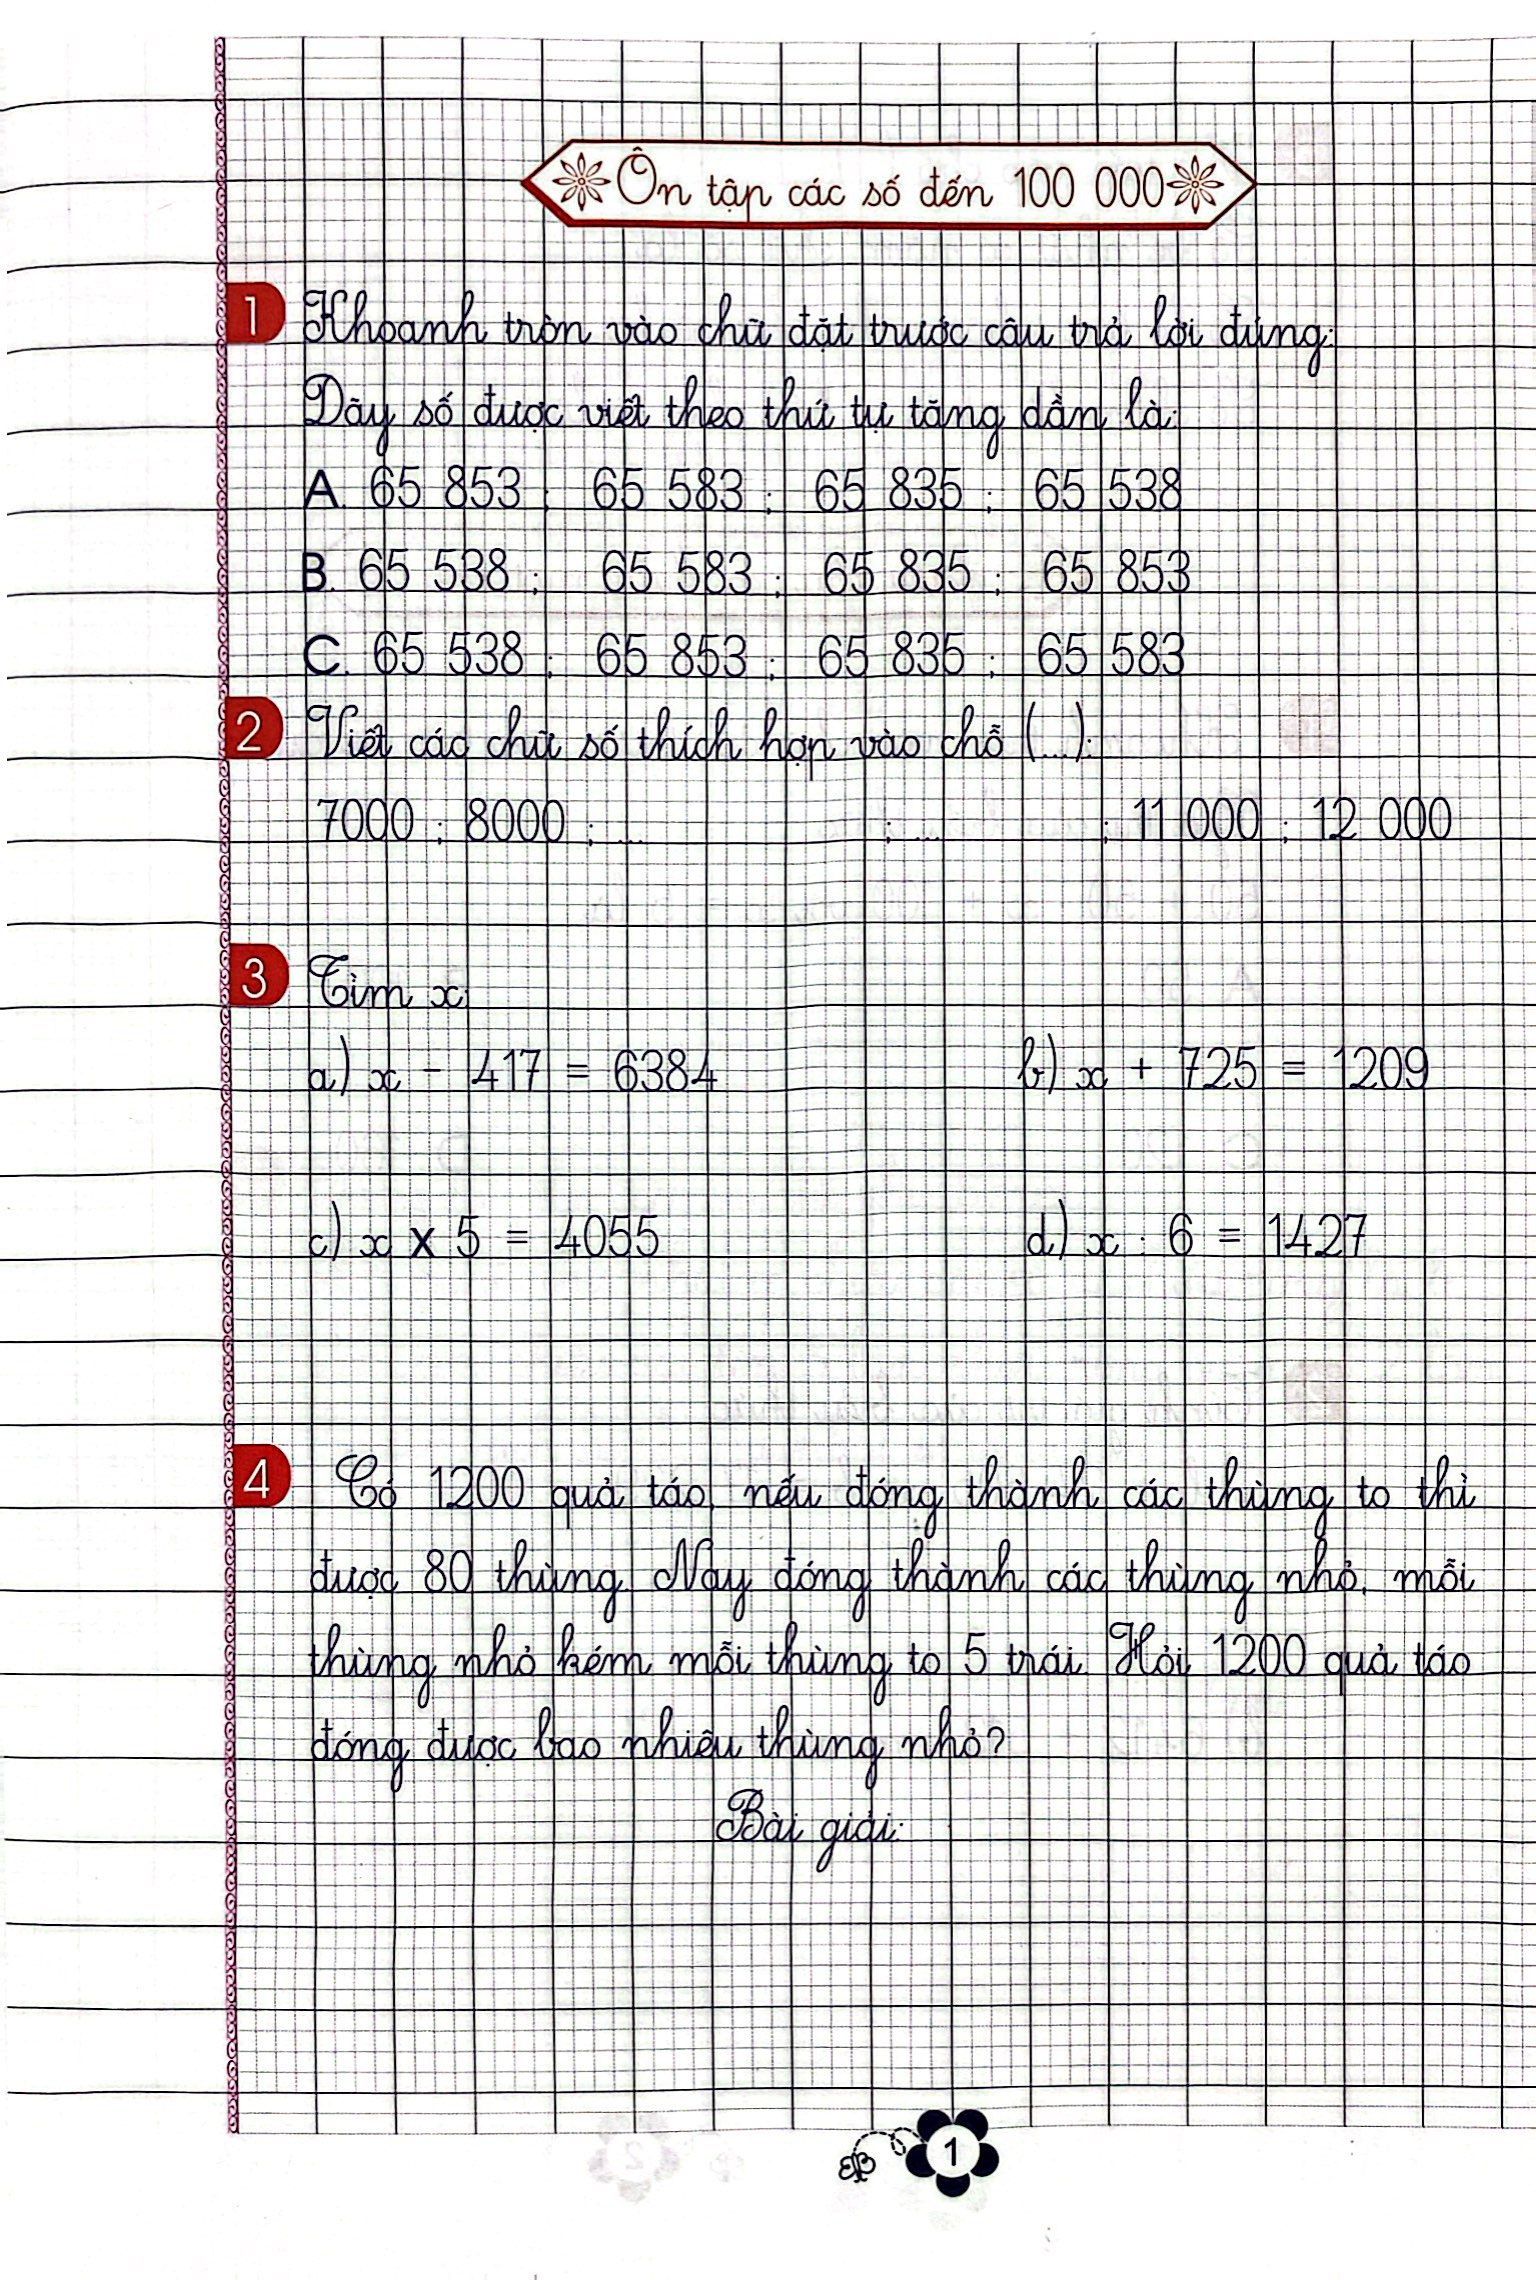 Ôn tập các số đến 100 000
1 Khoanh tròn vào chữ đặt trước câu trả lời đúng:
Dãy số được viết theo thứ tự tăng dần là:
A. 65 853 ; 65 583 ; 65 835 ; 65 538
B. 65 538 ; 65 583 ; 65 835 ; 65 853
C. 65 538 ; 65 853 ; 65 835 ; 65 583
2 Viết các chữ số thích hợp vào chỗ (...):
7000 ; 8000 ; ... ; ... ; 11 000 ; 12 000
3 Tìm x:
a) x - 417 = 6384 b) x + 725 = 1209
c) x x 5 = 4055 d) x : 6 = 1427
4 Có 1200 quả táo, nếu đóng thành các thùng to thì
được 80 thùng. Nay đóng thành các thùng nhỏ, mỗi
thùng nhỏ kém mỗi thùng to 5 trái. Hỏi 1200 quả táo
đóng được bao nhiêu thùng nhỏ?
Bài giải:
1